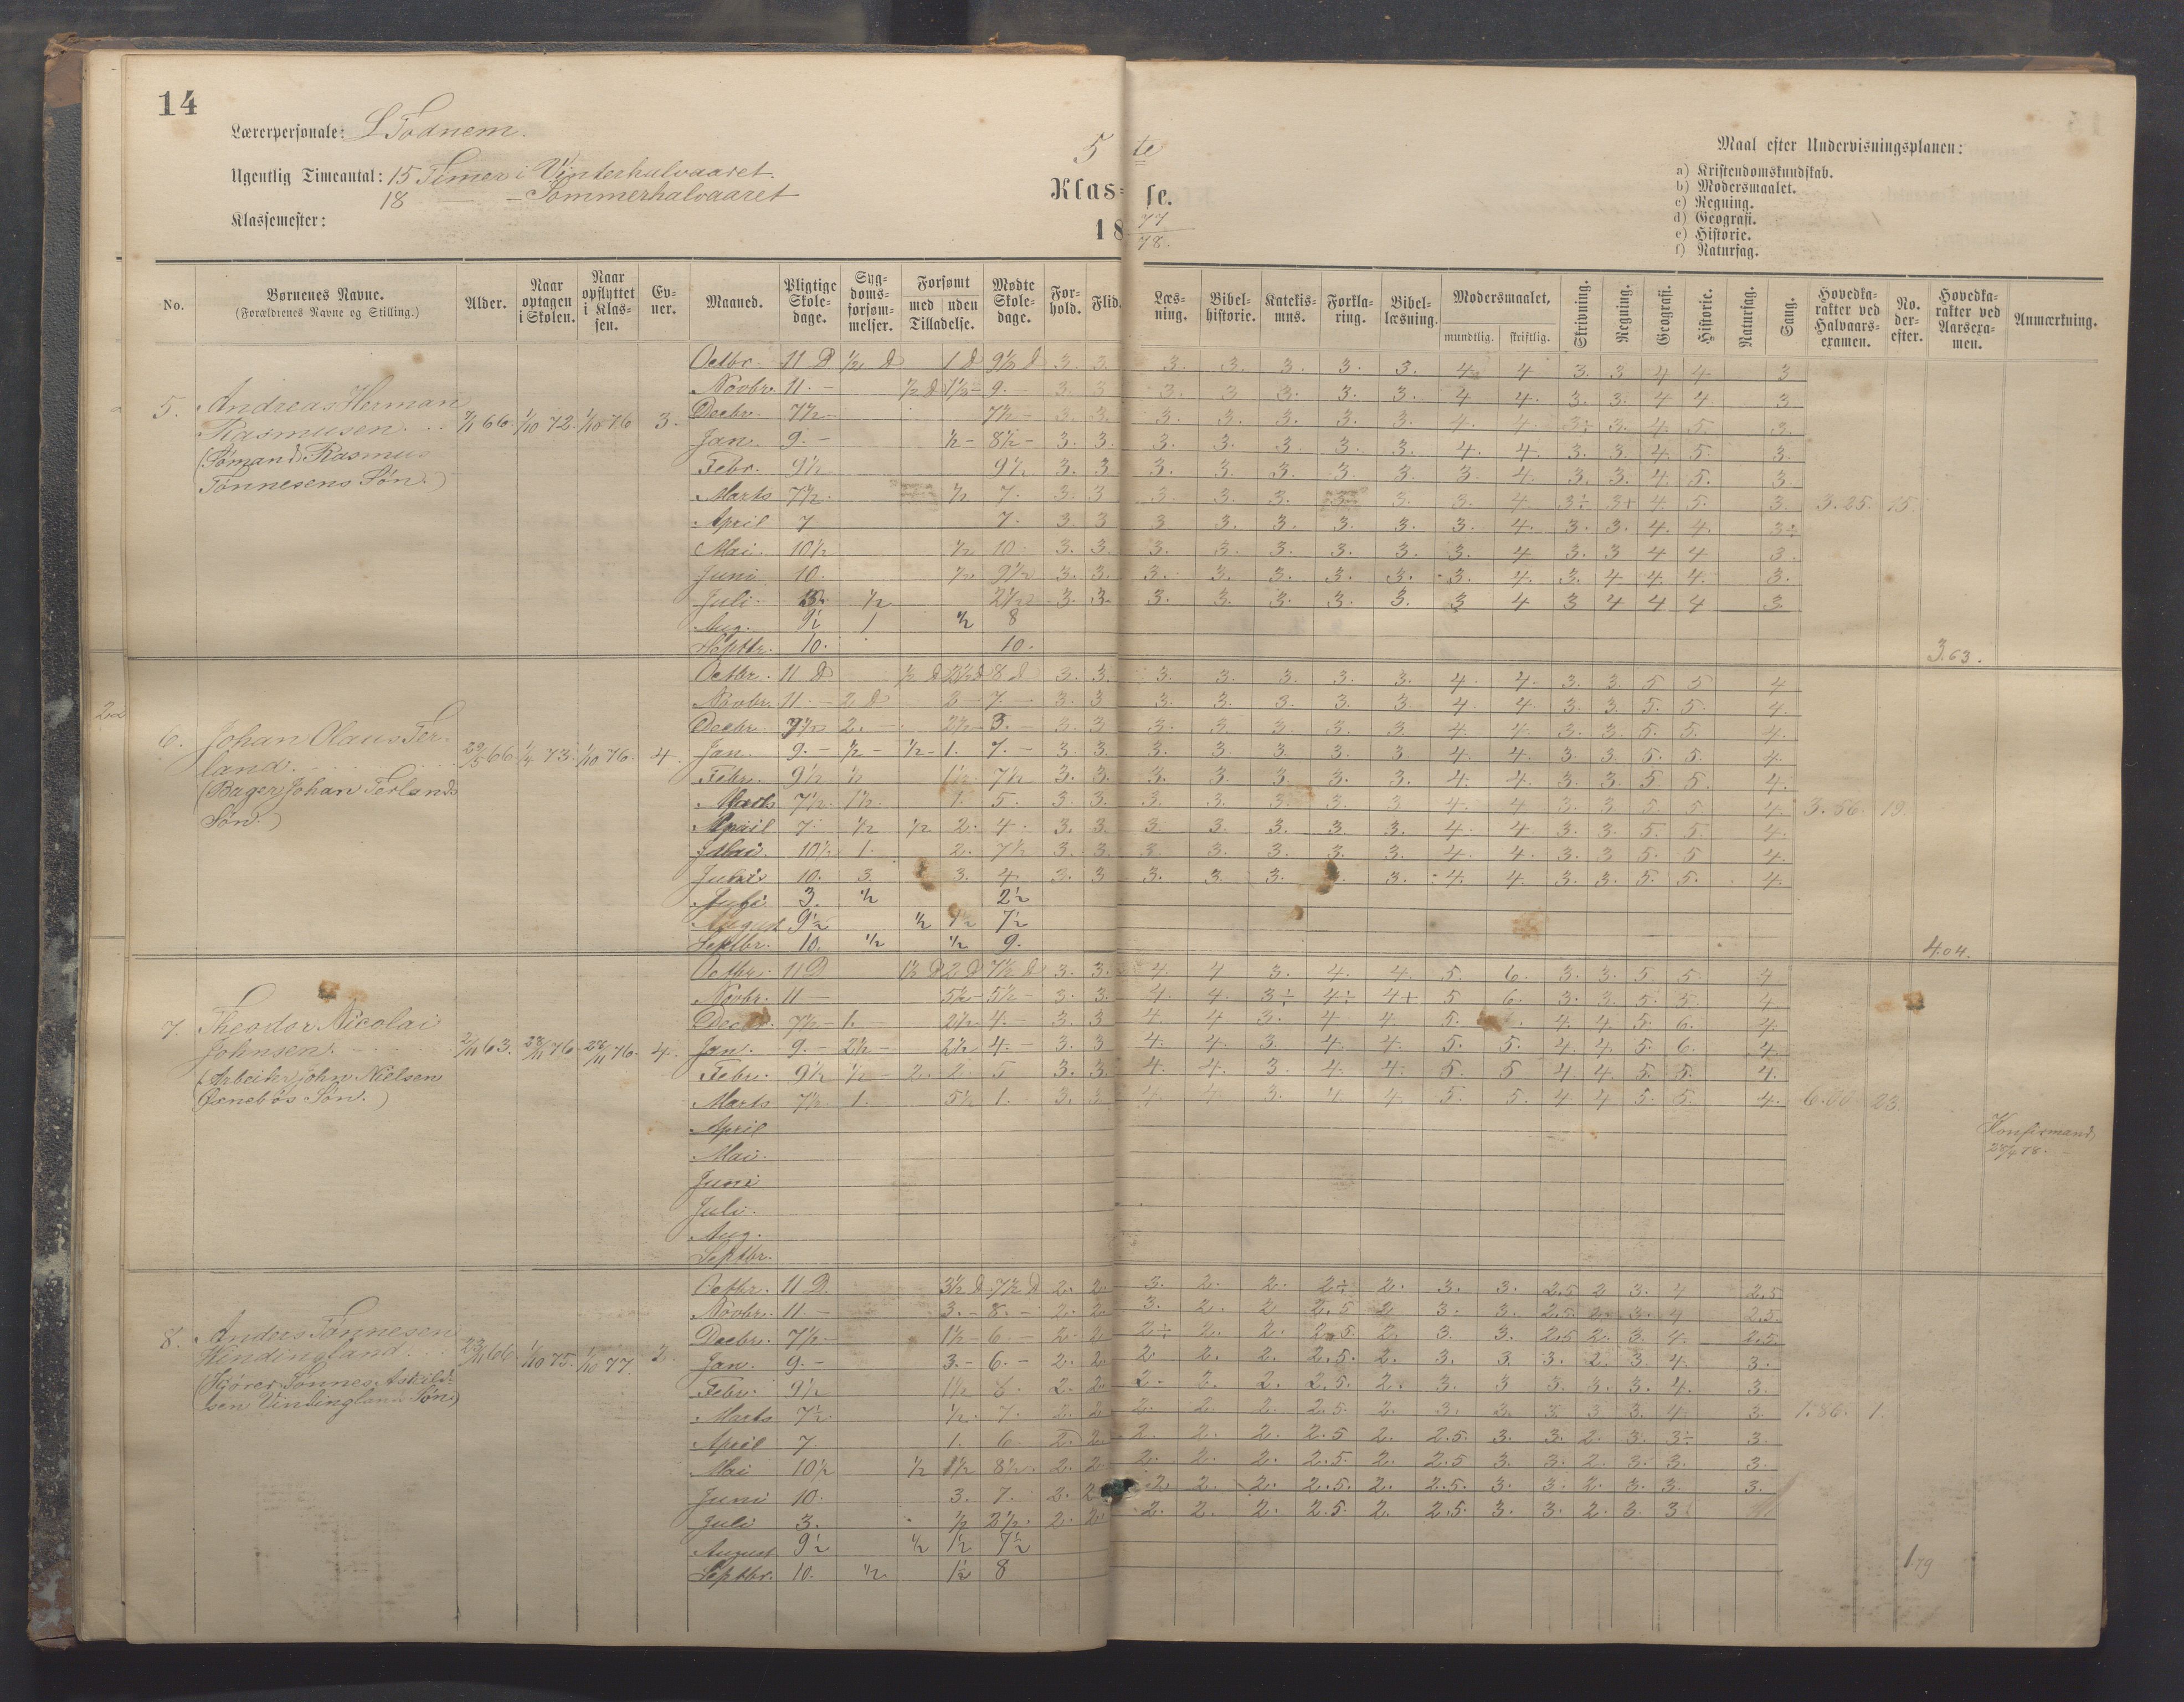 14
Lærerpersonale: L Todnem.
Ugentlig Timeantal: 15 Timer i Vinterhalvaaret.
18 — - Sommerhalvaaret
Klassemester:
5 te
Klas- se.
18 77/78.
Maal efter Undervisningsplanen:
a) Kristendomskundskab.
b) Modersmaalet.
c) Regning.
d) Geografi.
e) Historie.
f) Naturfag.
No. Børnenes Navne. (Forældrenes Navne og Stilling.) Alder. Naar optagen i Skolen. Naar opflyttet i Klassen. Evner. Maaned. Pligtige Skoledage. Sygdomsforsømmelser. Forsømt med uden Tilladelse. Mødte Skoledage. Forhold. Flid. Læsning. Bibelhistorie. Katekismus. Forklaring. Bibellæsning. Modersmaalet, mundtlig. skriftlig. Skrivning. Regning. Geografi. Historie. Naturfag. Sang. Hovedkarakter ved Halvaarsexamen. No. derefter. Hovedkarakter ved Aarsexamen. Anmærkning.
5. Andreas Herman
Rasmusen.
(Sømand Rasmus
Tønnesens Søn.)
1/10 72. 1/10 76 3.
Octbr. 11 D ½ d 1 d 9½ d 3. 3. 3. 3. 3. 3. 3. 4 4 3. 3 4 4 3
Novbr. 11. - ½ d 1½ - 9. - 3. 3 3. 3 3 3. 3. 4 4. 3. 3. 4 4 3.
Decbr. 7½ - 7½ - 3. 3. 3. 3. 3. 3. 3. 4. 4. 3÷ 3. 4. 5. 3.
Jan. 9. - ½ - 8½ - 3. 3. 3. 3. 3. 3. 3. 4. 4. 3. 3. 4. 5. 3.
Febr. 9½ 9½ 3. 3 3. 3. 3. 3. 3. 3. 4. 3. 3. 4. 5. 3.
Marts 7½. ½ 7. 3. 3 3. 3. 3. 3. 3. 3. 4. 3÷ 3+ 4. 5. 3. 3.25. 15.
April 7 7. 3. 3 3 3. 3. 3. 3. 3. 4. 3. 3. 4. 4. 3÷
Mai. 10½ ½ 10. 3. 3. 3. 3. 3. 3. 3. 3. 4 3. 3 4 4 3.
Juni 10. ½ 9½ 3. 3. 3. 3. 3. 3. 3. 3. 4. 3. 4 4. 4. 3.
Juli. 3. ½ 2½ 3. 3. 3. 3. 3. 3. 3. 3 4 3 4 4 4 3
Aug. 9½ 1 ½ 8
Septbr. 10. 10.
3.63.
6. Johan Olaus Ter-
land.
(Bager Johan Terlands
Søn.)
1/10 76. 4.
Octbr. 11 d ½ d 2½ d 8 d 3. 3. 3. 3. 3. 3. 3. 4 4. 3. 3. 5 5 4
Novbr. 11. - 2 d 2 - 7. - 3. 3 3. 3. 3. 3. 3. 4 4. 3. 3. 5. 5. 4.
Decbr. 7½ 2. - 2½ - 3. - 3. 3 3. 3. 3. 3. 3. 4. 4. 3. 3. 5. 5. 4.
Jan. 9. - ½ - ½ - 1. 7. - 3. 3. 3. 3. 3. 3. 3 4. 4. 3. 3. 5. 5. 4.
Febr. 9½ ½ 1½ 7½ 3. 3. 3. 3. 3. 3. 3. 4. 4. 3. 3. 5. 5. 4.
Marts 7½. 1½. 1. 5. 3. 3. 3. 3. 3. 3. 3. 4. 4 3. 3. 5 5. 4. 3.56. 19.
April 7. ½ ½ 2. 4. 3. 3. 3. 3. 3. 3. 3. 4. 4 3. 3. 5. 5. 4.
Mai. 10½ 1. 2. 7½ 3. 3. 3. 3. 3. 3. 3. 4. 4. 3. 3. 5. 5. 4.
Juni 10. 3. 3. 4. 3. 3 3. 3. 3. 3. 4. 4. 3. 3. 5. 5. 4.
Juli 3. ½ 2½
August 9½ ½ ½ 7½
Septbr. 10. ½ ½ 9.
4.04.
7. Theodor Nicolai
Johnsen.
(Arbeider John Nielsen
Søn.)
28/11 76. 28/11 76. 4.
Octbr. 11 D 1½ d 2 d 7½ d 3. 3. 4. 4 3. 4. 4. 5 6. 3. 3. 5 5. 4
Novbr. 11 - 5½ - 5½ - 3. 3. 4. 4. 3÷ 4÷ 4+ 5 6. 3. 3. 5. 5. 4.
Decbr. 7½ - 1. - 2½ - 4. - 3. 3 4. 4 3. 4 4 5. 4. 4. 5 6. 4.
Jan. 9. - 2½ - 2½ 4. - 3. 3 4. 4. 3. 4. 4. 5. 5. 4. 4. 5 6. 4.
Febr. 9½ ½ - 2. 2. 5 3. 3. 4. 4. 3. 4. 4. 5. 5 4. 4. 5. 5. 4.
Marts 7½. 1. 5½ 1. 3. 3 4 4. 3. 4. 4. 5. 5. 4. 4 5. 5. 4. 23.
April
Mai.
Juni
Juli.
Aug.
Septbr.
Konfirmand
28/4 78.
8. Anders Tønnesen
Vindingland.
(Kjører Tønnes Askild-
sen Vindinglands Søn)
1/10 75. 1/10 77. 2.
Octbr. 11 D. 3½ d 7½ D 2. 2. 3. 2. 2. 2÷ 2. 3. 3. 2.5 2 3. 4 2.5
Novbr. 11. - 3. - 8. - 2. 2. 3. 2. 2 2.5 2 3. 3. 2.5. 2. 3. 4 2.5.
Decbr. 7½ - 1½ - 6. - 2. 2 2÷ 2. 2. 2.5. 2. 3. 3. 2.5 2. 3. 4. 2.5.
Jan. 9. - 3. - 6. - 2. 2. 2. 2. 2. 2.5. 2. 3. 3. 3. 2. 3. 4. 3.
Febr. 9½ 1½ 8. 2. 2. 2. 2. 2. 2.5. 2. 3. 3 3. 3. 3. 4. 3.
Marts 7½ ½. 7. 2. 2 2. 2. 2. 2.5. 2. 3. 3. 3. 3. 3. 4. 3. 1.86. 1.
April 7. 1. 6 2. 2. 2. 2. 2. 2.5 2. 2.5. 3. 3. 2. 3. 3÷ 3.
Mai 10½ ½ 1½ 8½. 2. 2. 2. 2. 2. 2.5. 2. 2.5 3. 3. 2. 3. 3. 3.
Juni 10. 3. 7. 2. 2 2. 2. 2. 2.5. 2. 2.5. 3. 3. 2. 3. 3. 3.
Juli 3. ½ 2½. 2. 2. 2. 2. 2. 2.5. 2. 2.5. 3. 3. 2. 3. 3.
August 9½ ½ 1½ 7½
Septbr. 10. ½ 1½ 8
1.79